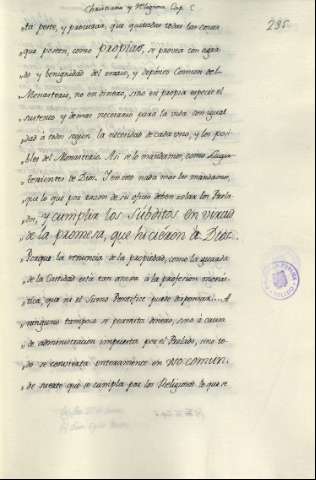 Christiana y Religiosa Cap. C
295.
ta parte, y procuren, que quitadas todas las cosas
que poseen, como propias, se provea con agra-
do y benignidad del erario, y depósito Comun del
Monasterio, no en dinero, sino en propia especie el
sustento y demas necesario para la vida con igual
dad à todos segun la necesidad de cada uno, y los posi
bles del Monasterio. Asi se lo mandamos, como Luga
Tenientes de Dios. Y en esto nada mas les mandamos,
que lo que por razon de su oficio deben zelar los Prela
dos, y cumplir los Súbditos en virtud
de la promesa, que hicieron à Dios.
Porque la renuncia de la propiedad, como la guarda
de la Castidad está tan anexa à la profesion monás-
tica, que ni el Sumo Pontifice puede dispensarla... A
ninguno tampoco se permita dinero, sino à causa
de administracion impuesta por el Prelado, sino to-
do se convierta enteramente en NO COMUN.
de suerte que se cumpla por los Religiosos lo que se